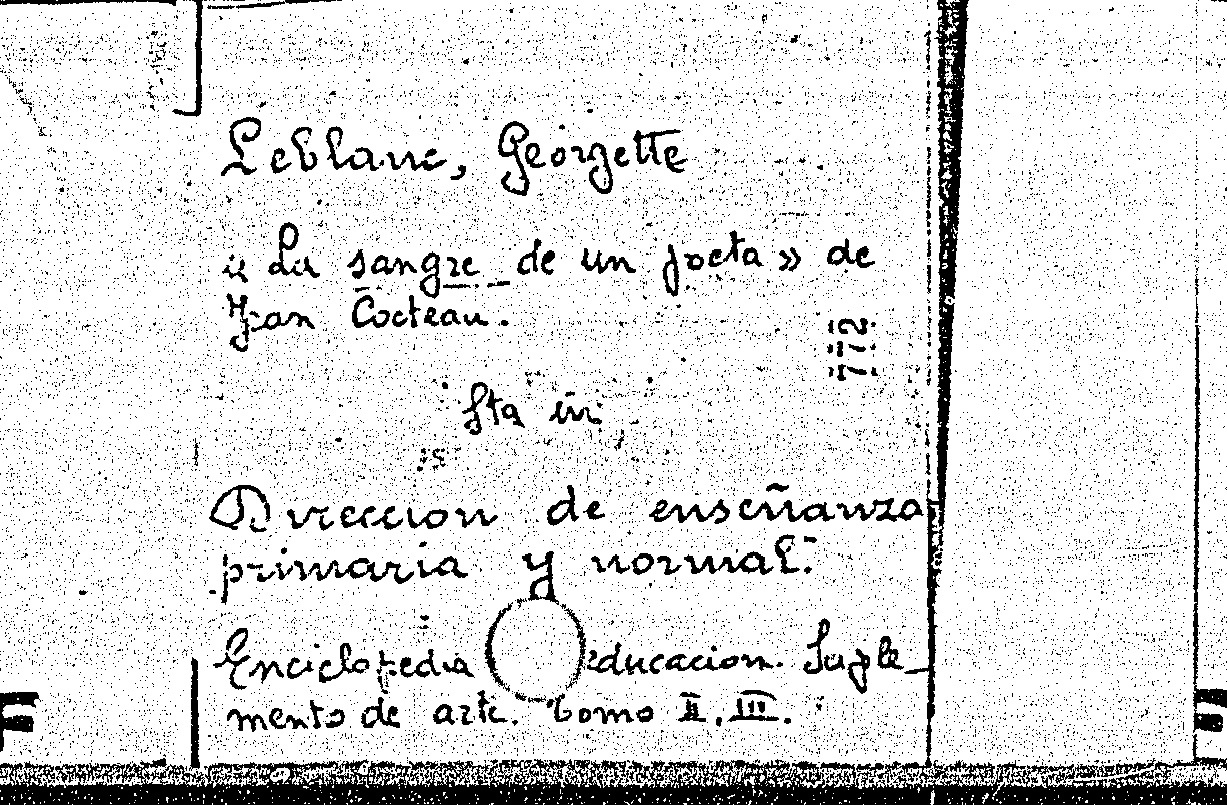 Leblanc, Georgette
« La sangre de un poeta » de
Jean Cocteau.
772
Sta en
Direccion de enseñanza
primaria y normal.
Enciclopedia educacion. Suple-
mento de arte. Tomo II, III.